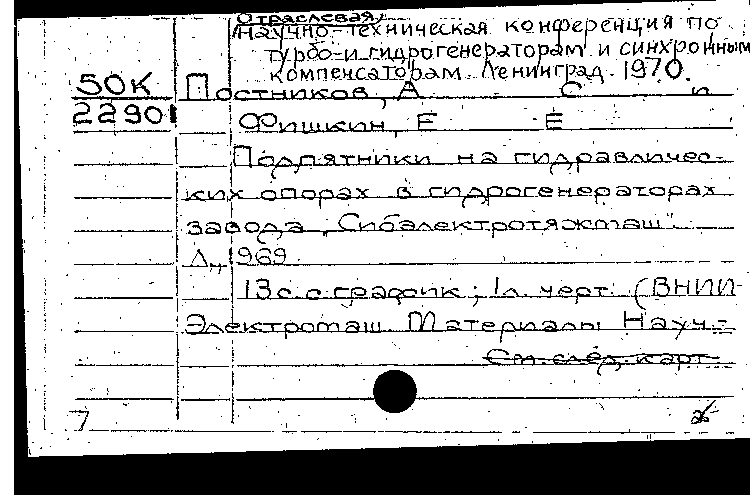 Отраслевая
Научно-техническая конференция по
турбо-и гидрогенераторам и синхронным
компенсаторам. Ленинград. 1970.
50К Постников, А С п
22901 Фишкин, Е Е
Подпятники на гидравличес-
ких опорах в гидрогенераторах
завода "Сибэлектротяжмаш".
Л., 1969
13с. с график; 1л. черт. (ВНИИ-
Электромаш. Материалы Науч.-
См. след. карт